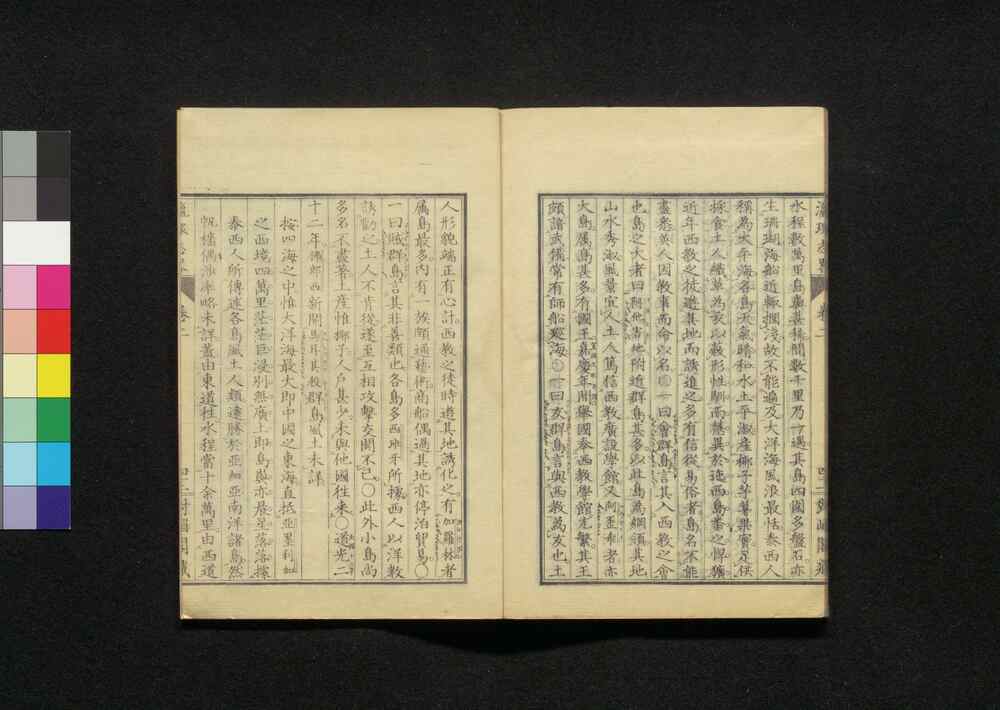 水程數萬里島輿甚稀間數千里乃一遇其島四圍多盤石亦
生珊瑚海船近輒擱淺故不能遍及大洋海風浪最恬泰西人
稱為太平海各島天氣晴和水土平淑產椰子芋薯果實足供
採食土人織草為衣 形性馴而慧異於迤西島番之悍獷
近年西教之徒遊其地而誘進之多有信從易俗者島名不能
盡悉英人因教事而命以名 一曰會群島言其入西教之會
也島之大者曰 附近群島甚多以此島為綱領其地
山水秀淑風景宜人土人篤信西教廣設學館又 者亦
大島屬島甚多有國王嘉慶年間舉國奉西教學館尤繁其王
頗講武備常有師船巡海 一曰友群島言與西教為友也土
人形貌端正有心計西教之徒時遊其地諭化之有加羅林者
屬島最多內有一族頗通藝術商船偶過其地亦停泊貿易〇
一曰賊群島言其非善類也各島多西班牙所據西人以洋教
誘勸之土人不肯從遂至互相攻擊交鬨不已〇此外小島尚
多名不盡著土產惟椰子人戶甚少未與他國往來〇道光二
十二年佛郎西新開馬耳其殺群島風土未詳
按四海之中惟大洋海最大即中國之東海直抵亞墨利加
之西境四萬里茫茫巨浸別無廣土即島與亦晨星落落據
泰西人所傳述各島風土人類遠勝於亞細亞南洋諸島然
帆檣偶涉崖略未詳蓋由東道往水程當十余萬里由西道
卷二